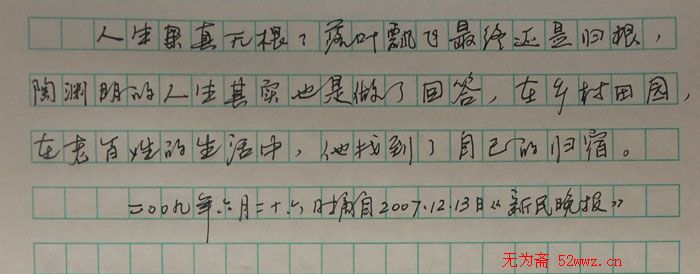 人生果真无根？落叶飘飞最终还是归根，
陶渊明的人生其实也是做了回答，在乡村田园，
在老百姓的生活中，他找到了自己的归宿。
二00九年六月二十六日摘自2007.12.13日《新民晚报》
无为斋 52wwz.cn